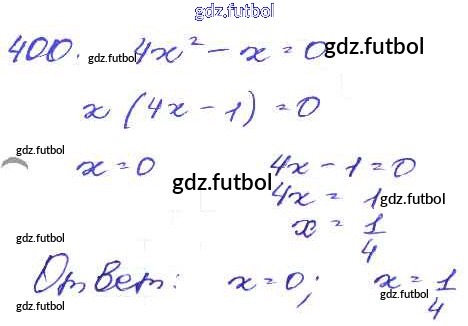 gdz.futbol
400. gdz.futbol 4x² - x = 0 gdz.futbol
x (4x - 1) = 0
gdz.futbol
x = 0 gdz.futbol 4x - 1 = 0
4x = 1 gdz.futbol
x = 1/4
gdz.futbol
Ответ: x = 0; x = 1/4
gdz.futbol gdz.futbol